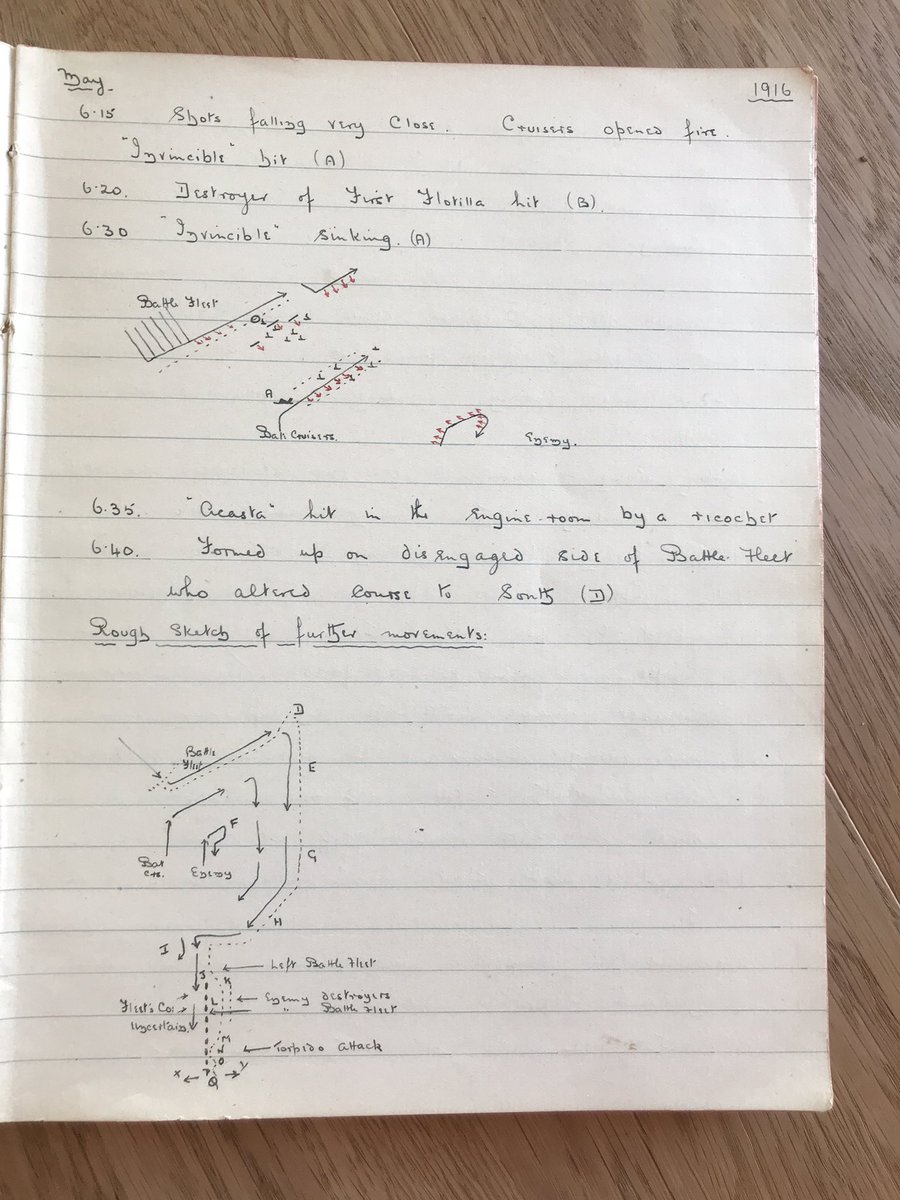 May. 1916
6.15 Shots falling very close. Cruisers opened fire.
"Invincible" hit (A)
6.20. Destroyer of First Flotilla hit (B).
6.30 "Invincible" sinking. (A)
Battle Fleet
A
Bat Cruisers.
Enemy.
6.35. "Acasta" hit in the Engine-room by a ricochet
6.40. Formed up on disengaged side of Battle Fleet
who altered course to South (D)
Rough Sketch of further movements:
D
Battle
Fleet
E
F
G
Bat
Crs.
Enemy
H
I
Left Battle Fleet
J
K
Fleet's Co:
L
Enemy destroyers
" Battle Fleet
Uncertain.
M
N
Torpido attack
O
P
X
Q
Y